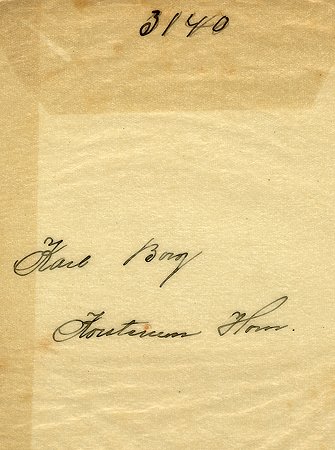 3140
Karl Borg
Horn.